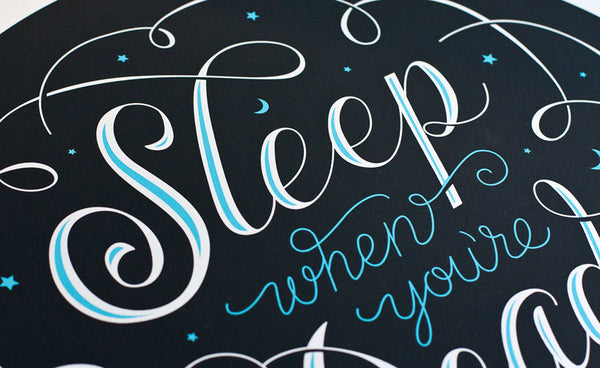 Sleep
when
you're
Dead